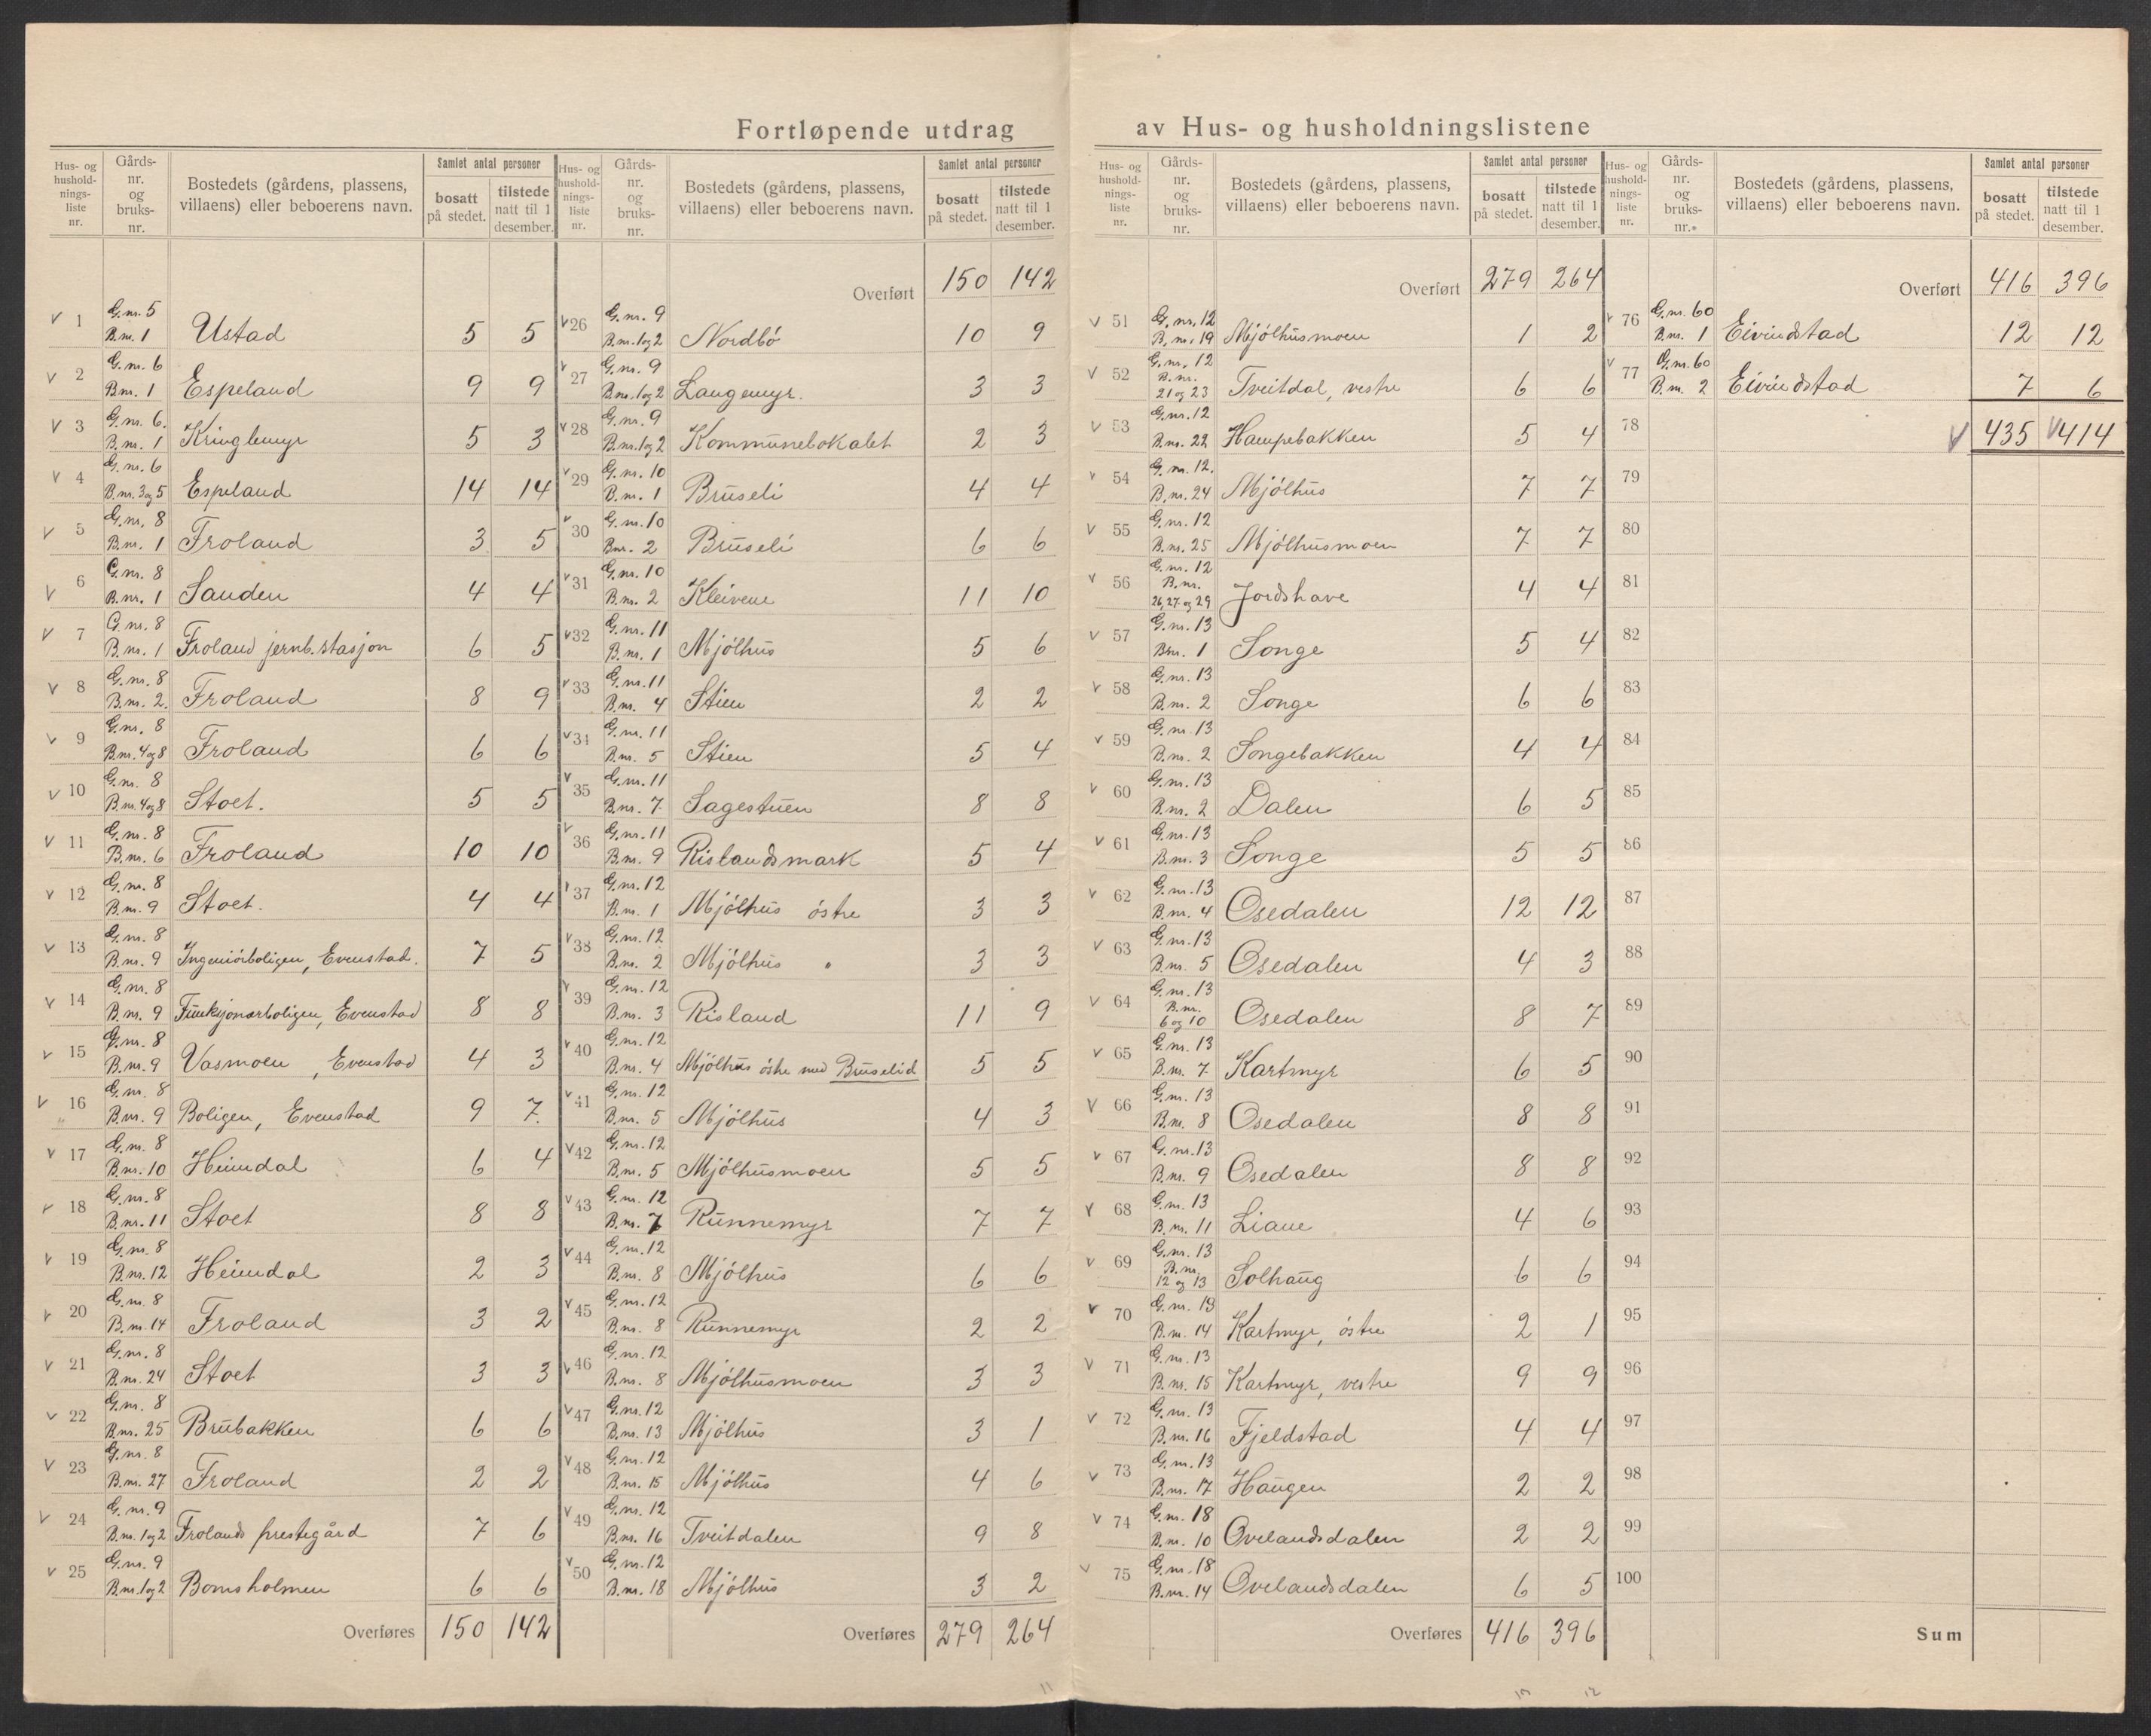 Fortløpende utdrag av Hus- og husholdningslistene
Hus- og husholdnings-liste nr. | Gårds-nr. og bruks-nr. | Bostedets (gårdens, plassens, villaens) eller beboerens navn. | Samlet antal personer bosatt på stedet. | tilstede natt til 1 desember.
v 1 | G.nr. 5 B.nr. 1 | Ustad | 5 | 5
v 2 | G.nr. 6 B.nr. 1 | Espeland | 9 | 9
v 3 | G.nr. 6. B.nr. 1 | Kringlemyr | 5 | 3
v 4 | G.nr. 6 B.nr. 3 og 5 | Espeland | 14 | 14
v 5 | G.nr. 8 B.nr. 1 | Froland | 3 | 5
v 6 | G.nr. 8 B.nr. 1 | Sanden | 4 | 4
v 7 | G.nr. 8 B.nr. 1 | Froland jernb.stasjon | 6 | 5
v 8 | G.nr. 8 B.nr. 2. | Froland | 8 | 9
v 9 | G.nr. 8 B.nr. 4 og 8 | Froland | 6 | 6
v 10 | G.nr. 8 B.nr. 4 og 8 | Stoet. | 5 | 5
v 11 | G.nr. 8 B.nr. 6 | Froland | 10 | 10
v 12 | G.nr. 8 B.nr. 9 | Stoet. | 4 | 4
v 13 | G.nr. 8 B.nr. 9 | Ingeniörboligen, Evenstad. | 7 | 5
v 14 | G.nr. 8 B.nr. 9 | Funksjonærboligen, Evenstad | 8 | 8
v 15 | G.nr. 8 B.nr. 9 | Vasmoen, Evenstad | 4 | 3
v 16 | G.nr. 8 B.nr. 9 | Boligen, Evenstad | 9 | 7.
v 17 | G.nr. 8 B.nr. 10 | Heimdal | 6 | 4
v 18 | G.nr. 8 B.nr. 11 | Stoet | 8 | 8
v 19 | G.nr. 8 B.nr. 12 | Heimdal | 2 | 3
v 20 | G.nr. 8 B.nr. 14 | Froland | 3 | 2
v 21 | G.nr. 8 B.nr. 24 | Stoet | 3 | 3
v 22 | G.nr. 8 B.nr. 25 | Brubakken | 6 | 6
v 23 | G.nr. 8 B.nr. 27 | Froland | 2 | 2
v 24 | G.nr. 9 B.nr. 1 og 2 | Frolands prestegård | 7 | 6
v 25 | G.nr. 9 B.nr. 1 og 2 | Bomsholmen | 6 | 6
Overføres | 150 | 142
Hus- og husholdnings-liste nr. | Gårds-nr. og bruks-nr. | Bostedets (gårdens, plassens, villaens) eller beboerens navn. | Samlet antal personer bosatt på stedet. | tilstede natt til 1 desember.
Overført | 150 | 142
v 26 | G.nr. 9 B.nr. 1 og 2 | Nordbö | 10 | 9
v 27 | G.nr. 9 B.nr. 1 og 2 | Langemyr. | 3 | 3
v 28 | G.nr. 9 B.nr. 1 og 2 | Kommunelokalet | 2 | 3
v 29 | G.nr. 10 B.nr. 1 | Bruseli | 4 | 4
v 30 | G.nr. 10 B.nr. 2 | Bruseli | 6 | 6
v 31 | G.nr. 10 B.nr. 2 | Kleivene | 11 | 10
v 32 | G.nr. 11 B.nr. 1 | Mjölhus | 5 | 6
v 33 | G.nr. 11 B.nr. 4 | Stien | 2 | 2
v 34 | G.nr. 11 B.nr. 5 | Stien | 5 | 4
v 35 | G.nr. 11 B.nr. 7. | Sagestuen | 8 | 8
v 36 | G.nr. 11 B.nr. 9 | Rislandsmark | 5 | 4
v 37 | G.nr. 12 B.nr. 1 | Mjölhus östre | 3 | 3
v 38 | G.nr. 12 B.nr. 2 | Mjölhus " | 3 | 3
v 39 | G.nr. 12 B.nr. 3 | Risland | 11 | 9
v 40 | G.nr. 12 B.nr. 4 | Mjölhus östre med Bruselid | 5 | 5
v 41 | G.nr. 12 B.nr. 5 | Mjölhus | 4 | 3
v 42 | G.nr. 12 B.nr. 5 | Mjölhusmoen | 5 | 5
v 43 | G.nr. 12 B.nr. 7 | Runnemyr | 7 | 7
v 44 | G.nr. 12 B.nr. 8 | Mjölhus | 6 | 6
v 45 | G.nr. 12 B.nr. 8 | Runnemyr | 2 | 2
v 46 | G.nr. 12 B.nr. 8 | Mjölhusmoen | 3 | 3
v 47 | G.nr. 12 B.nr. 13 | Mjölhus | 3 | 1
v 48 | G.nr. 12 B.nr. 15 | Mjölhus | 4 | 6
v 49 | G.nr. 12 B.nr. 16 | Tveitdalen | 9 | 8
v 50 | G.nr. 12 B.nr. 18 | Mjölhus | 3 | 2
Overføres | 279 | 264
Hus- og husholdnings-liste nr. | Gårds-nr. og bruks-nr. | Bostedets (gårdens, plassens, villaens) eller beboerens navn. | Samlet antal personer bosatt på stedet. | tilstede natt til 1 desember.
Overført | 279 | 264
v 51 | G.nr. 12 B.nr. 19 | Mjölhusmoen | 1 | 2
v 52 | G.nr. 12 B.nr. 21 og 23 | Tveitdal, vestre | 6 | 6
v 53 | G.nr. 12 B.nr. 22 | Hampebakken | 5 | 4
v 54 | G.nr. 12. B.nr. 24 | Mjölhus | 7 | 7
v 55 | G.nr. 12 B.nr. 25 | Mjölhusmoen | 7 | 7
v 56 | G.nr. 12 B.nr. 26, 27 og 29 | Jordshave | 4 | 4
v 57 | G.nr. 13 B.nr. 1 | Songe | 5 | 4
v 58 | G.nr. 13 B.nr. 2 | Songe | 6 | 6
v 59 | G.nr. 13 B.nr. 2 | Songebakken | 4 | 4
v 60 | G.nr. 13 B.nr. 2 | Dalen | 6 | 5
v 61 | G.nr. 13 B.nr. 3 | Songe | 5 | 5
v 62 | G.nr. 13 B.nr. 4 | Osedalen | 12 | 12
v 63 | G.nr. 13 B.nr. 5 | Osedalen | 4 | 3
v 64 | G.nr. 13 B.nr. 6 og 10 | Osedalen | 8 | 7
v 65 | G.nr. 13 B.nr. 7. | Kartmyr | 6 | 5
v 66 | G.nr. 13 B.nr. 8 | Osedalen | 8 | 8
v 67 | G.nr. 13 B.nr. 9 | Osedalen | 8 | 8
v 68 | G.nr. 13 B.nr. 11 | Liane | 4 | 6
v 69 | G.nr. 13 B.nr. 12 og 13 | Solhaug | 6 | 6
v 70 | G.nr. 13 B.nr. 14 | Kartmyr, östre | 2 | 1
v 71 | G.nr. 13 B.nr. 15 | Kartmyr, vestre | 9 | 9
v 72 | G.nr. 13 B.nr. 16 | Fjeldstad | 4 | 4
v 73 | G.nr. 13 B.nr. 17 | Haugen | 2 | 2
v 74 | G.nr. 18 B.nr. 10 | Ovelandsdalen | 2 | 2
v 75 | G.nr. 18 B.nr. 14 | Ovelandsdalen | 6 | 5
Overføres | 416 | 396
Hus- og husholdnings-liste nr. | Gårds-nr. og bruks-nr. | Bostedets (gårdens, plassens, villaens) eller beboerens navn. | Samlet antal personer bosatt på stedet. | tilstede natt til 1 desember.
Overført | 416 | 396
v 76 | G.nr. 60 B.nr. 1 | Eivindstad | 12 | 12
v 77 | G.nr. 60 B.nr. 2 | Eivindstad | 7 | 6
78 | v 435 | v 414
79
80
81
82
83
84
85
86
87
88
89
90
91
92
93
94
95
96
97
98
99
100
Sum
11
12